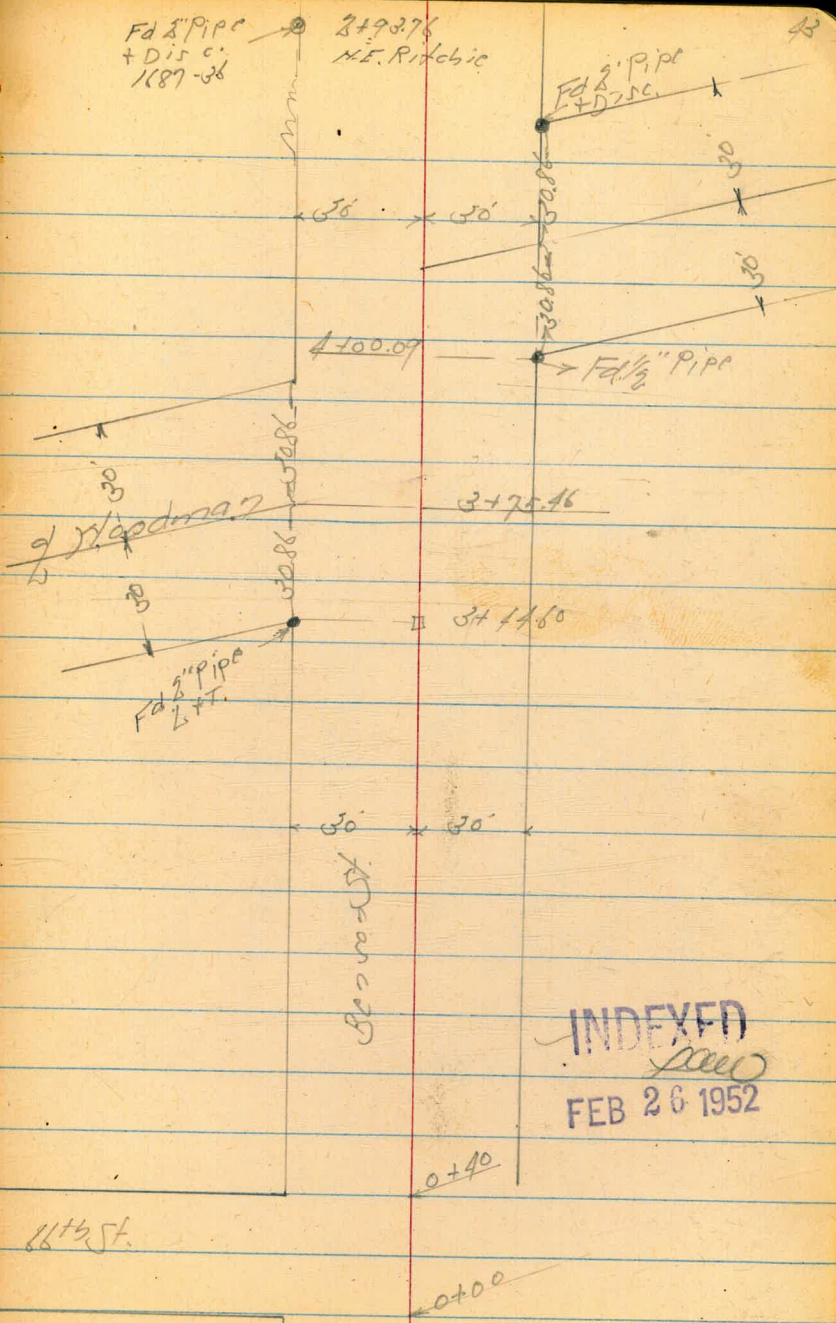 43
Fd 2" Pipe
+ Disc.
1687-36
2+93.76
H.E. Ritchie
Fd 2" Pipe
+ Disc.
30'
30'
30'
30.86
30.86
30'
4+00.09
Fd. 1/2" Pipe
30.86
30'
Woodman
3+75.46
30.86
30
3+44.60
Fd 2" Pipe
L+T.
30'
30'
INDEXED
FEB 26 1952
0+40
66th St.
0+00